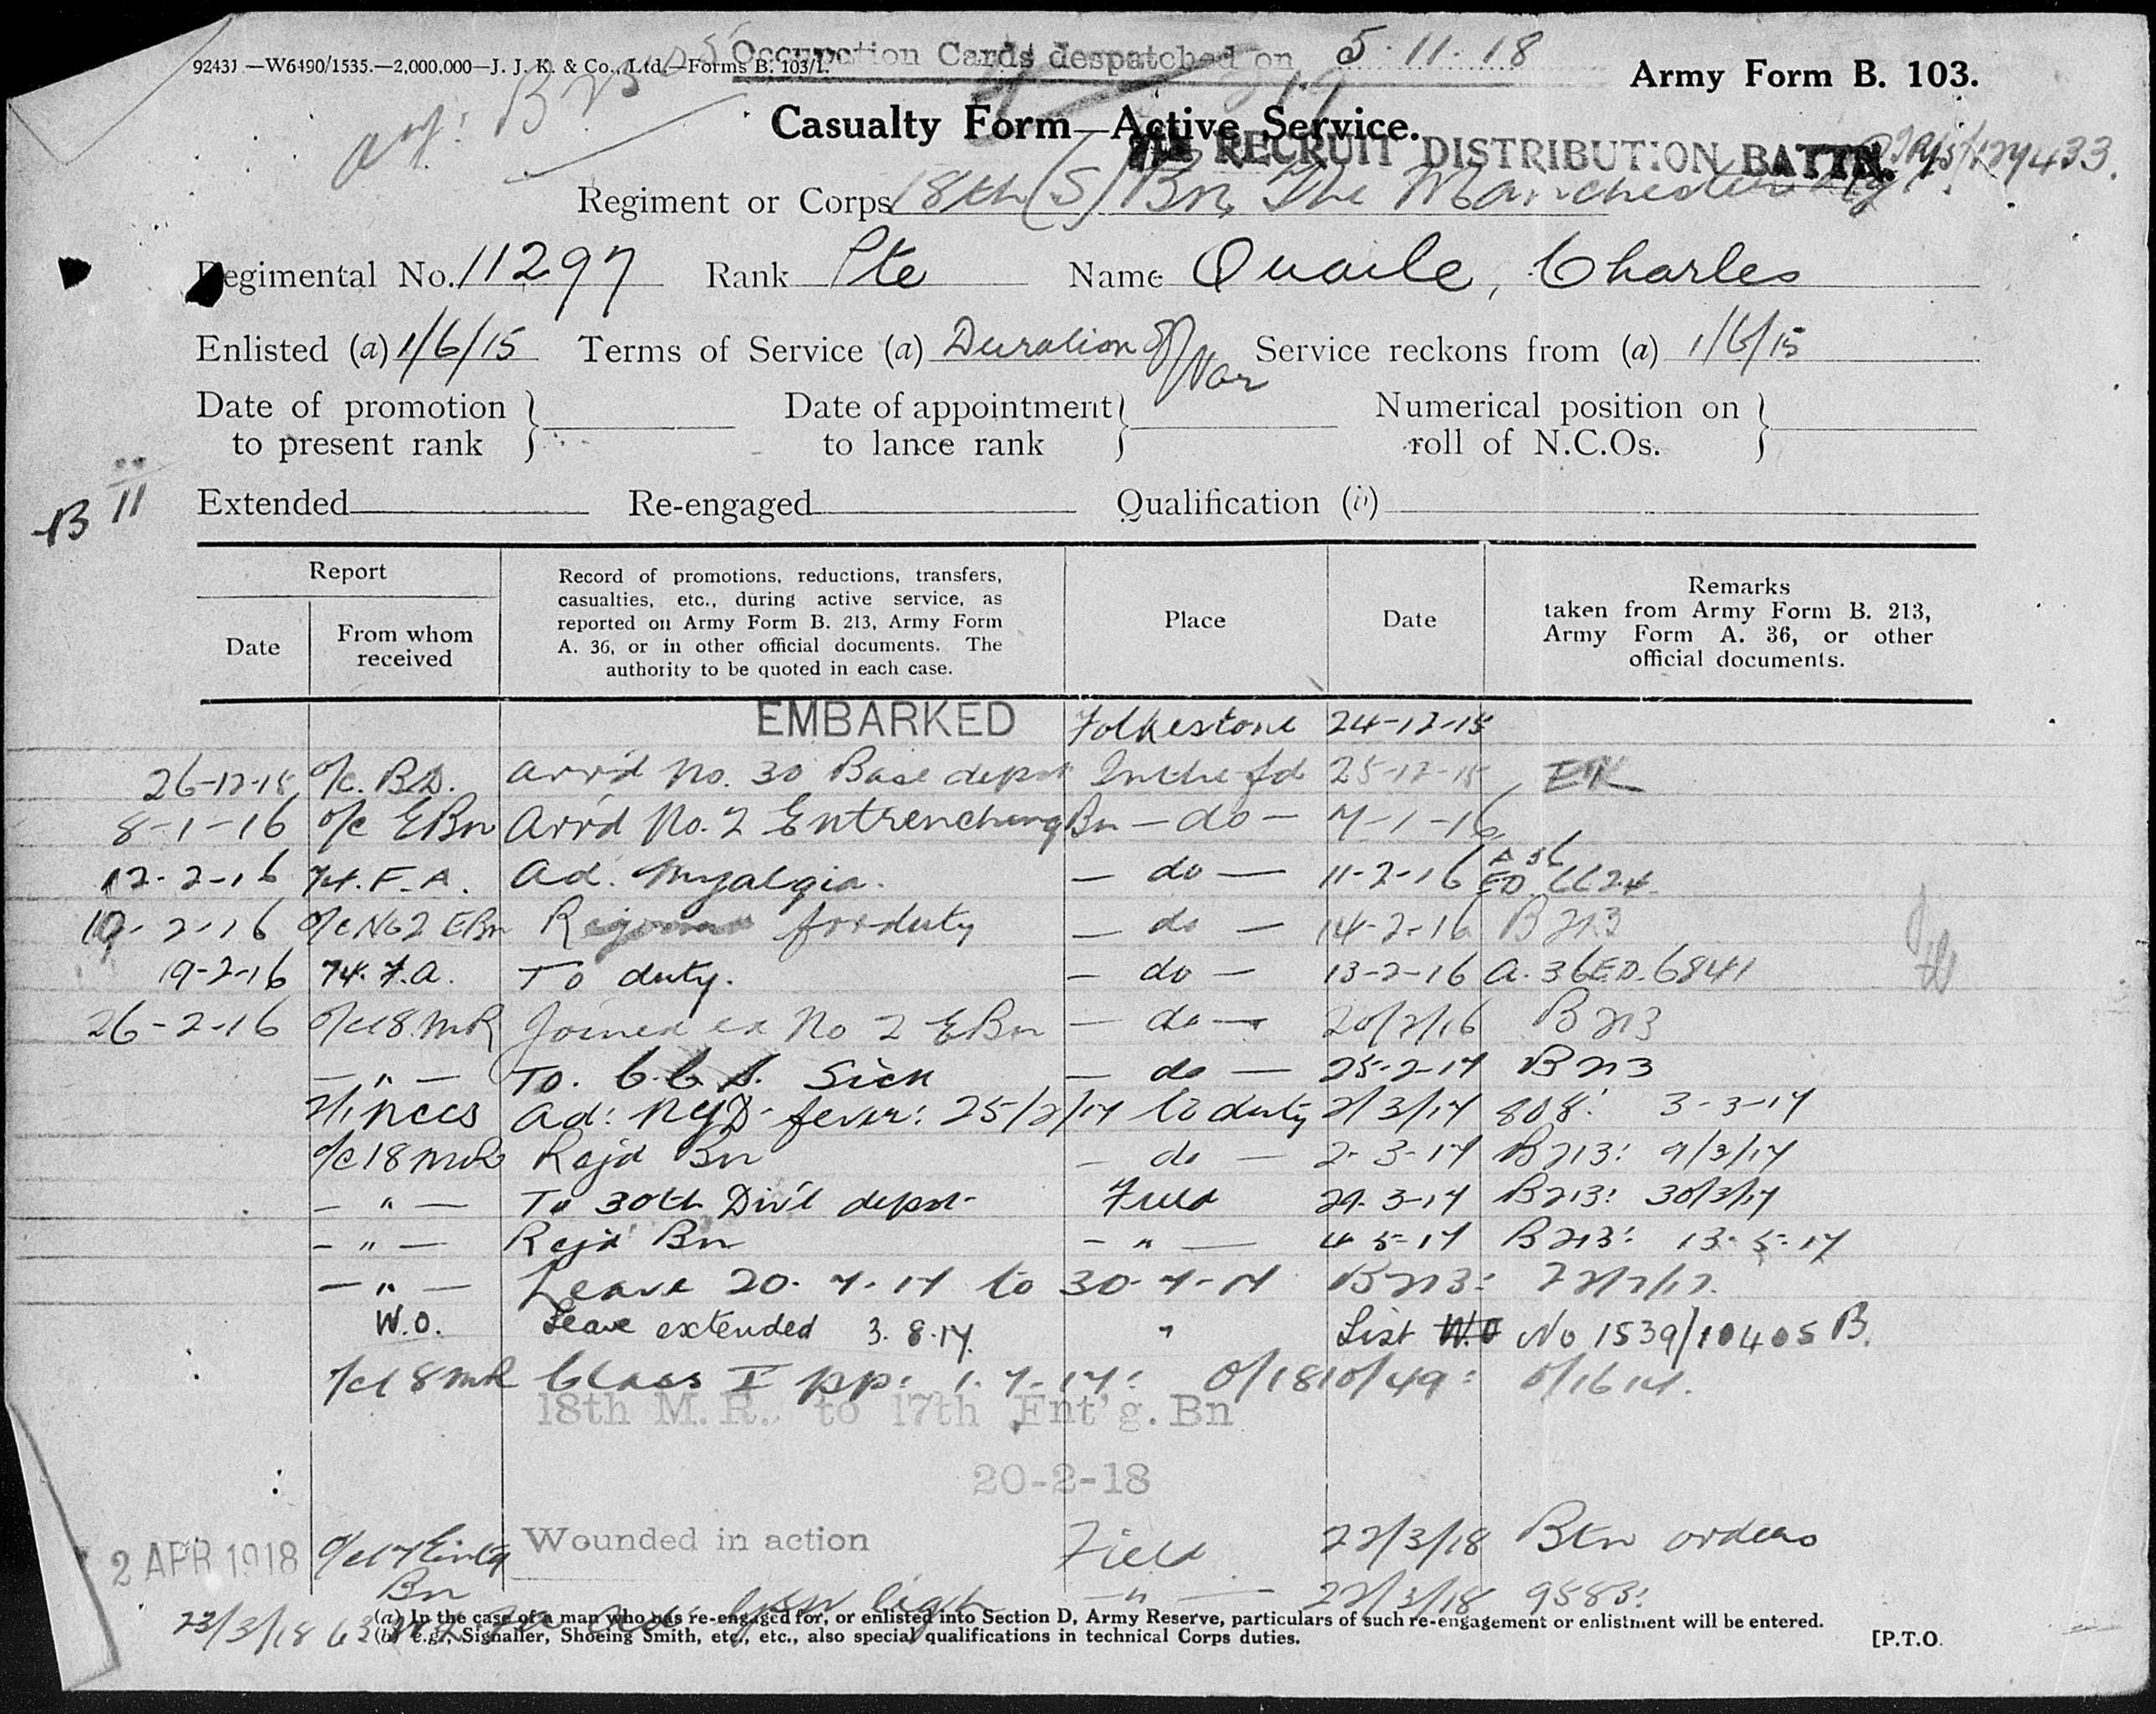 92431—W6490/1535.—2,000,000—J. J. K. & Co., Ltd.—Forms B. 103/1.
Occupation Cards despatched on 5.11.18
Army Form B. 103.
Casualty Form—Active Service.
RECRUIT DISTRIBUTION BATTN.
Regiment or Corps 18th (S) Bn, The Manchester
Regimental No. 11297 Rank Pte Name Quaile, Charles
Enlisted (a) 1/6/15 Terms of Service (a) Duration of War Service reckons from (a) 1/6/15
Date of promotion to present rank } Date of appointment to lance rank } Numerical position on roll of N.C.Os. }
B II
Extended Re-engaged Qualification (b)
Report
Date
From whom received
Record of promotions, reductions, transfers,
casualties, etc., during active service, as
reported on Army Form B. 213, Army Form
A. 36, or in other official documents. The
authority to be quoted in each case.
Place
Date
Remarks
taken from Army Form B. 213,
Army Form A. 36, or other
official documents.
EMBARKED Folkestone 24-12-15
26-12-15 o/c. B.D. arr'd No. 30 Base depot In the fd 25-12-15
8-1-16 o/c EBn Arr'd No. 2 Entrenching Bn — do — 7-1-16
12-2-16 74. F.A. Ad. Myalgia. — do — 11-2-16 A 36
19-2-16 o/c No 2 EBn for duty — do — 14-2-16 B213
19-2-16 74. F.A. To duty. — do — 13-2-16 A. 36 E.D. 6841
26-2-16 o/c 18 MR Joined ex No 2 EBn — do — 20/2/16 B213
— " — To. C.C.S. Sick — do — 25-2-17 B213
Ad: NYD fever: 25/2/17 to duty 2/3/17 808: 3-3-17
o/c 18 MR Rejd Bn — do — 2-3-17 B213: 9/3/17
— " — To 30th Div'l depot Field 29.3-17 B213: 30/3/17
— " — Rejd Bn — " — 4-5-17 B213: 13-5-17
— " — Leave 20.7.17 to 30-7-17 B213: 22/7/17.
W.O. Leave extended 3.8.17. " List W.O No 1539/10405 B.
o/c 18 MR Class I pp: 1.7.17: O/1810/49:
18th M.R. to 17th Ent'g. Bn
20-2-18
2 APR 1918 o/c 17 Entg Bn Wounded in action Field 22/3/18 Btn orders
— " — 22/3/18 9583:
23/3/18
(a) In the case of a man who has re-engaged for, or enlisted into Section D, Army Reserve, particulars of such re-engagement or enlistment will be entered.
(b) e.g., Signaller, Shoeing Smith, etc., etc., also special qualifications in technical Corps duties.
[P.T.O.